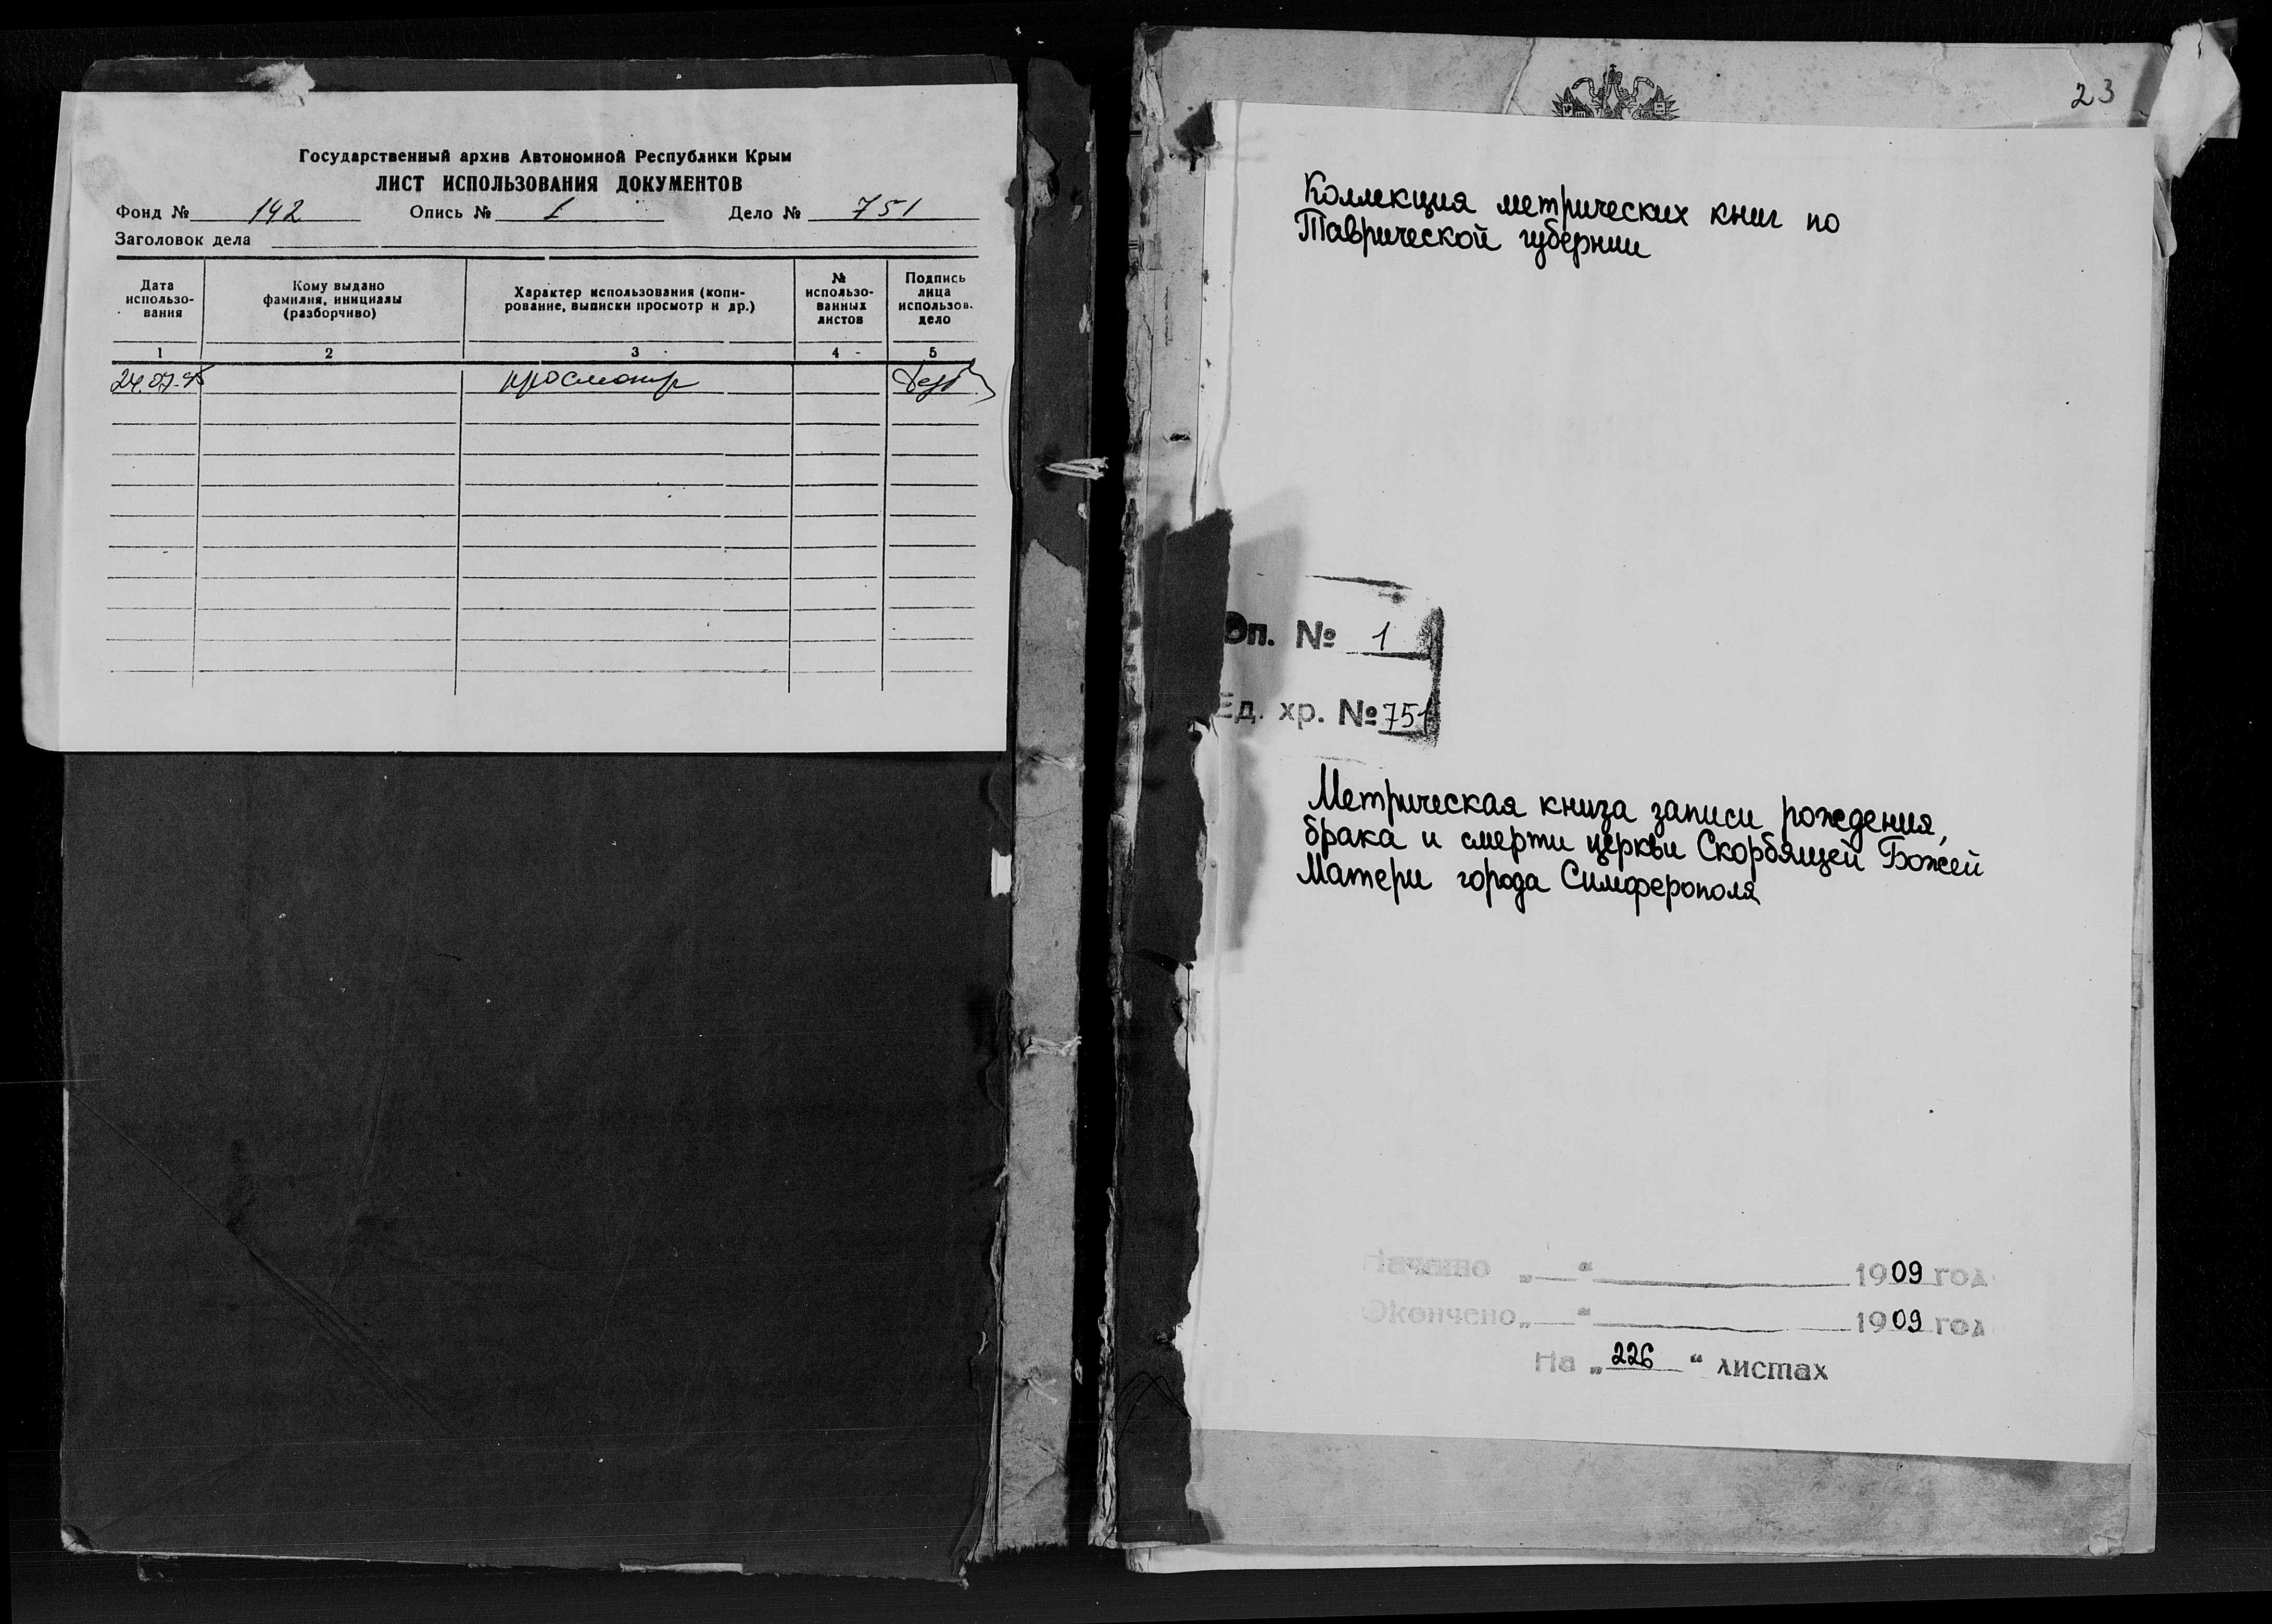 Государственный архив Автономной Республики Крым
ЛИСТ ИСПОЛЬЗОВАНИЯ ДОКУМЕНТОВ
Фонд № 142 Опись № 1 Дело № 751
Заголовок дела
Дата использо-вания
Кому выдано фамилия, инициалы (разборчиво)
Характер использования (копи-рование, выписки просмотр и др.)
№ использо-ванных листов
Подпись лица использов. дело
1 2 3 4 - 5
просмотр
23
Коллекция метрических книг по
Таврической губернии
Оп. № 1
Ед. хр. № 751
Метрическая книга записи рождения,
брака и смерти церкви Скорбящей Божей
Матери города Симферополя
Начано „—“ 1909 год
Окончено „—“ 1909 год
На „226“ листах